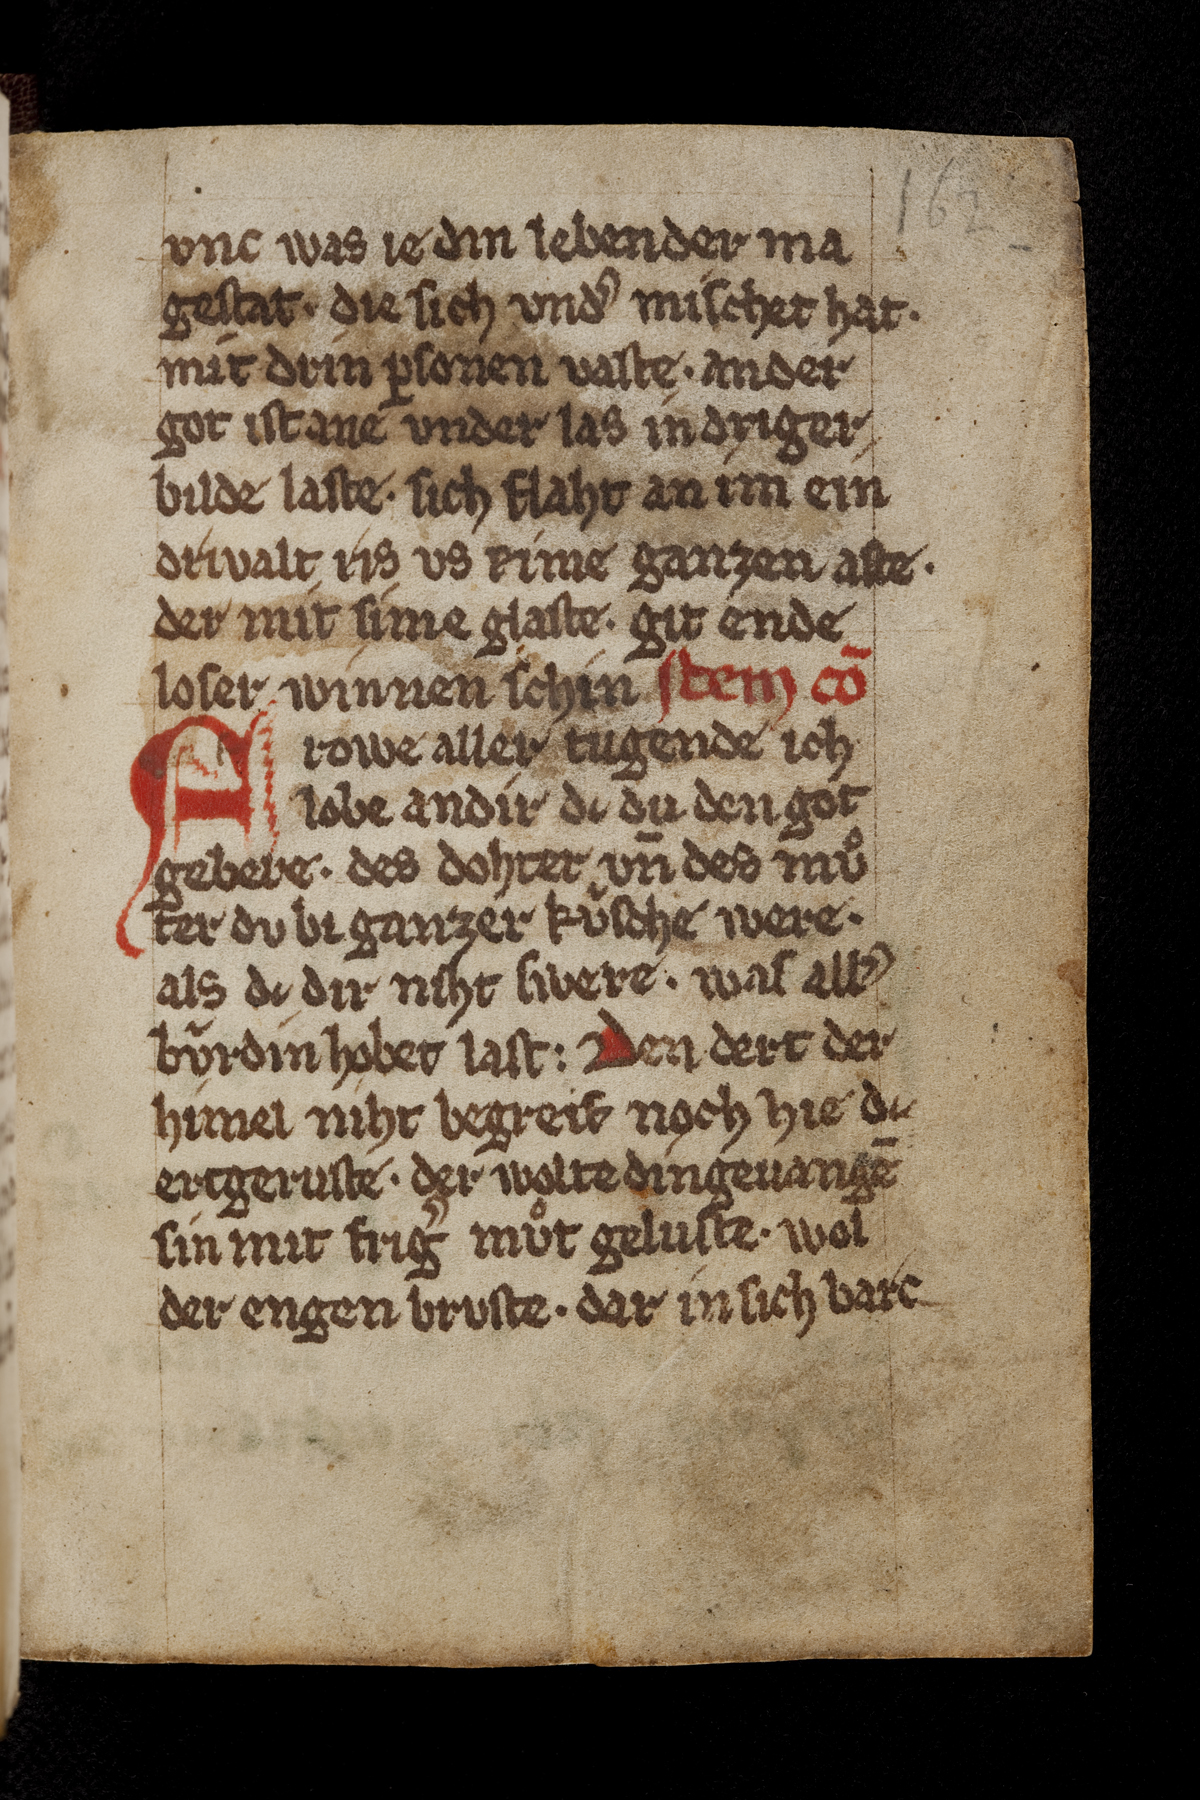 162
vnc was ie din lebender ma
gestat · die sich vnd᷑ mischet hat ·
mit drin ꝑsonen vaste · ander
got ist ane vnder las in driger
bilde laste · sich flaht an im ein
drivalt ris vs rime ganzen aste ·
der mit sime glaste · git ende
loser winnen schin stem co᷑̄
rowe aller tugende ich
lobe an dir dc du den got
gebere · des dohter vn̄ des mvͦ
ter dv bi ganzer kv̌sche were ·
als dc dir niht swere · was all᷑
bv̌rdin hobet last : Den dert der
himel niht begreif noch hie dc
ertgeruste · der wolte din gevangē
sin mit frig᷑ mvͦt geluste · wol
der engen brvste · dar in sich barc